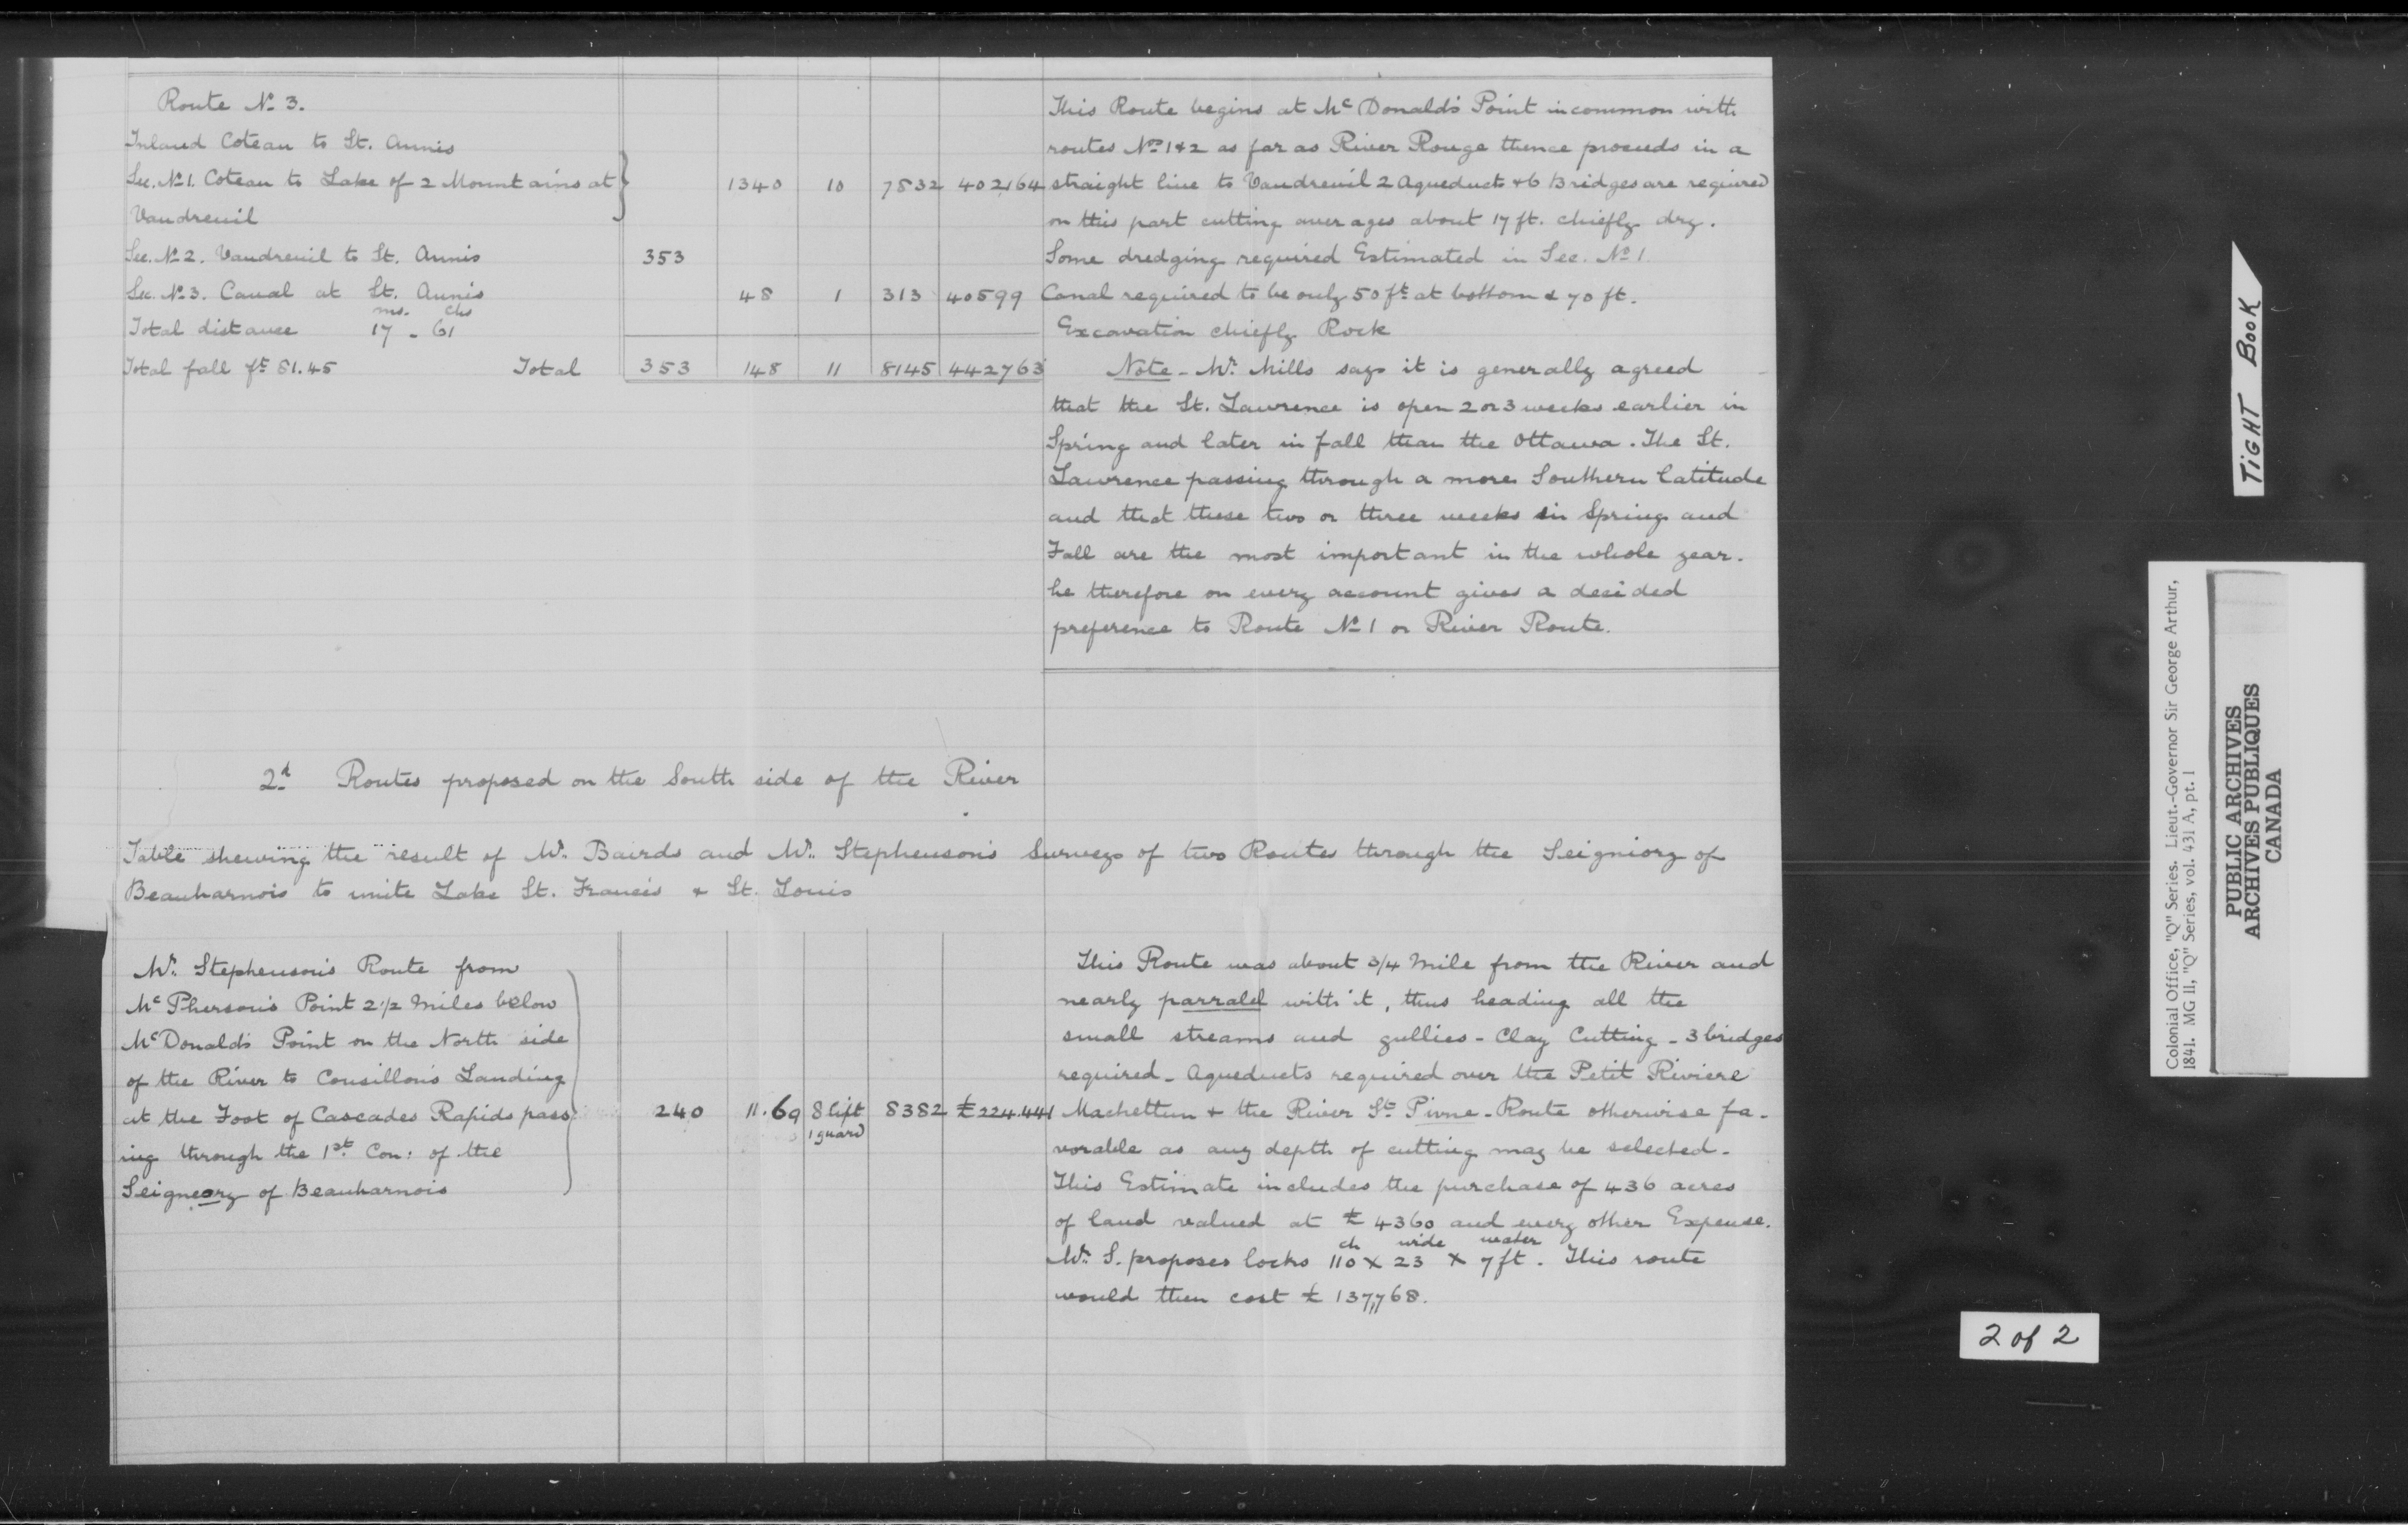 Route No 3.
Inland Coteau to St. Annis
Sec. No 1. Coteau to Lake of 2 Mountains at
Vaudreuil
1340 10 7832 402164
Sec. No 2. Vaudreuil to St. Annis 353
Sec. No 3. Canal at St. Annis 48 1 313 40599
ms. chs
Total distance 17 - 61
Total fall ft 81.45 Total 353 148 11 8145 442763
This Route begins at Mc Donald's Point in common with
routes Nos 1 & 2 as far as River Rouge thence proceeds in a
straight line to Vaudreuil 2 Aqueducts & 6 Bridges are required
on this part cutting averages about 17 ft. chiefly dry.
Some dredging required Estimated in Sec. No 1
Canal required to be only 50 ft at bottom & 70 ft.
Excavation chiefly Rock
Note - Mr. Mills says it is generally agreed
that the St. Lawrence is open 2 or 3 weeks earlier in
Spring and later in fall than the Ottawa. The St.
Lawrence passing through a more Southern latitude
and that these two or three weeks in Spring and
Fall are the most important in the whole year.
he therefore on every account gives a decided
preference to Route No 1 or River Route.
2d Routes proposed on the South side of the River
Table shewing the result of Mr. Bairds and Mr. Stephenson's Surveys of two Routes through the Seigniory of
Beauharnois to unite Lake St. Francis & St. Louis
Mr. Stephenson's Route from
Mc Pherson's Point 2 1/2 Miles below
McDonald's Point on the North side
of the River to Cousillon's Landing
at the Foot of Cascades Rapids pass
ing through the 1st Con: of the
Seigneory of Beauharnois
240 11.69 8 lift 8382 £224.441
1 guard
This Route was about 3/4 Mile from the River and
nearly parralel with it, thus heading all the
small streams and gullies - Clay Cutting - 3 bridges
required - Aqueducts required over the Petit Riviere
Machettun & the River St Pivne - Route otherwise fa-
vorable as any depth of cutting may be selected -
This Estimate includes the purchase of 436 acres
of land valued at £4360 and every other Expense.
ch wide water
Mr. S. proposes locks 110 x 23 x 7 ft. This route
would then cost £137,768.
TIGHT BOOK
Colonial Office, "Q" Series. Lieut.-Governor Sir George Arthur,
1841. MG 11, "Q" Series, vol. 431 A, pt. 1
PUBLIC ARCHIVES
ARCHIVES PUBLIQUES
CANADA
2 of 2